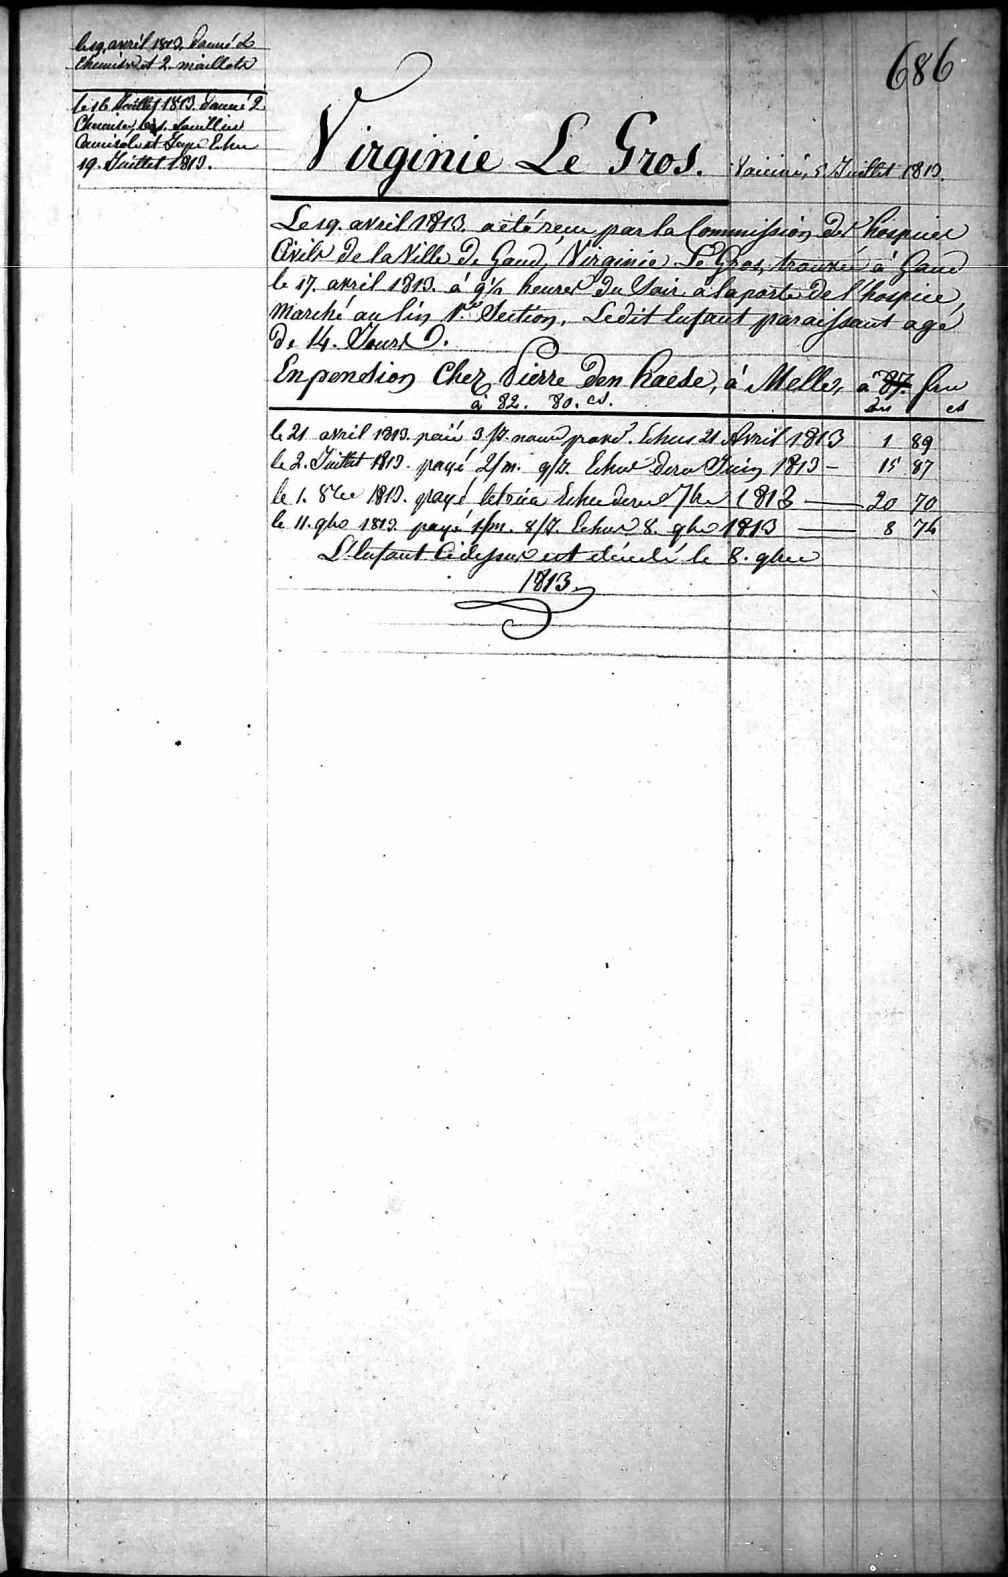 686
le 19. avril 1813. donné 2
chemises et 2. maillots
le 16 Juillet 1813. donné 2
Chemises, souillies
Camisole et Jupe Echu
19. Juillet 1813.
Virginie Le Gros.
Vacciné, 5 Juillet 1813.
Le 19. avril 1813. a eté recu par la Commission des hospices
Civils de la Ville de Gand, Virginie Le Gros, trouvée à Gand
le 17. avril 1813. à 9½ heures du Soir à la porte de l'hospice,
Marché au lin 1.re Section, Ledit Enfant paraissant agé
de 14. Jours.
En pension Chez Pierre Den haese, à Melle, à 87. frs
à 82. 80. cs.
cs
le 21 avril 1813. paié 3/j. nourr Echus 21 Avril 1813 1 89
le 2. Juillet 1813. payé 2/m. 9/j. Echus dern Juin 1813 - 15 87
le 1. 8bre 1813. payé le trim Echu dern 7bre 1813 — 20 70
le 11. 9bre 1813. payé 1/m. 8/j. Echus 8. 9bre 1813 — 8 76
L'Enfant Cidessus est décédé le 8. 9bre
1813.